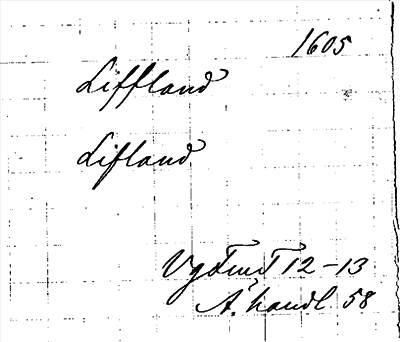 1605
Liffland
Lifland
12-13
Ä. handl. 58